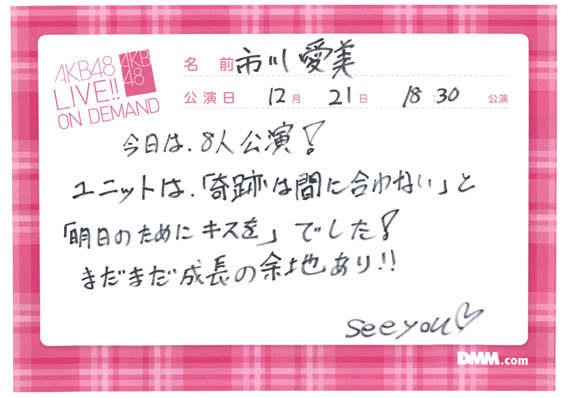 AKB48
LIVE!!
ON DEMAND
AKB
48
名 前 市川 愛美
公演日 12月 21日 18:30 公演
今日は、8人公演!
ユニットは、「奇跡は間に合わない」と
「明日のためにキスを」でした!
まだまだ成長の余地あり!!
see you♡
DMM.com